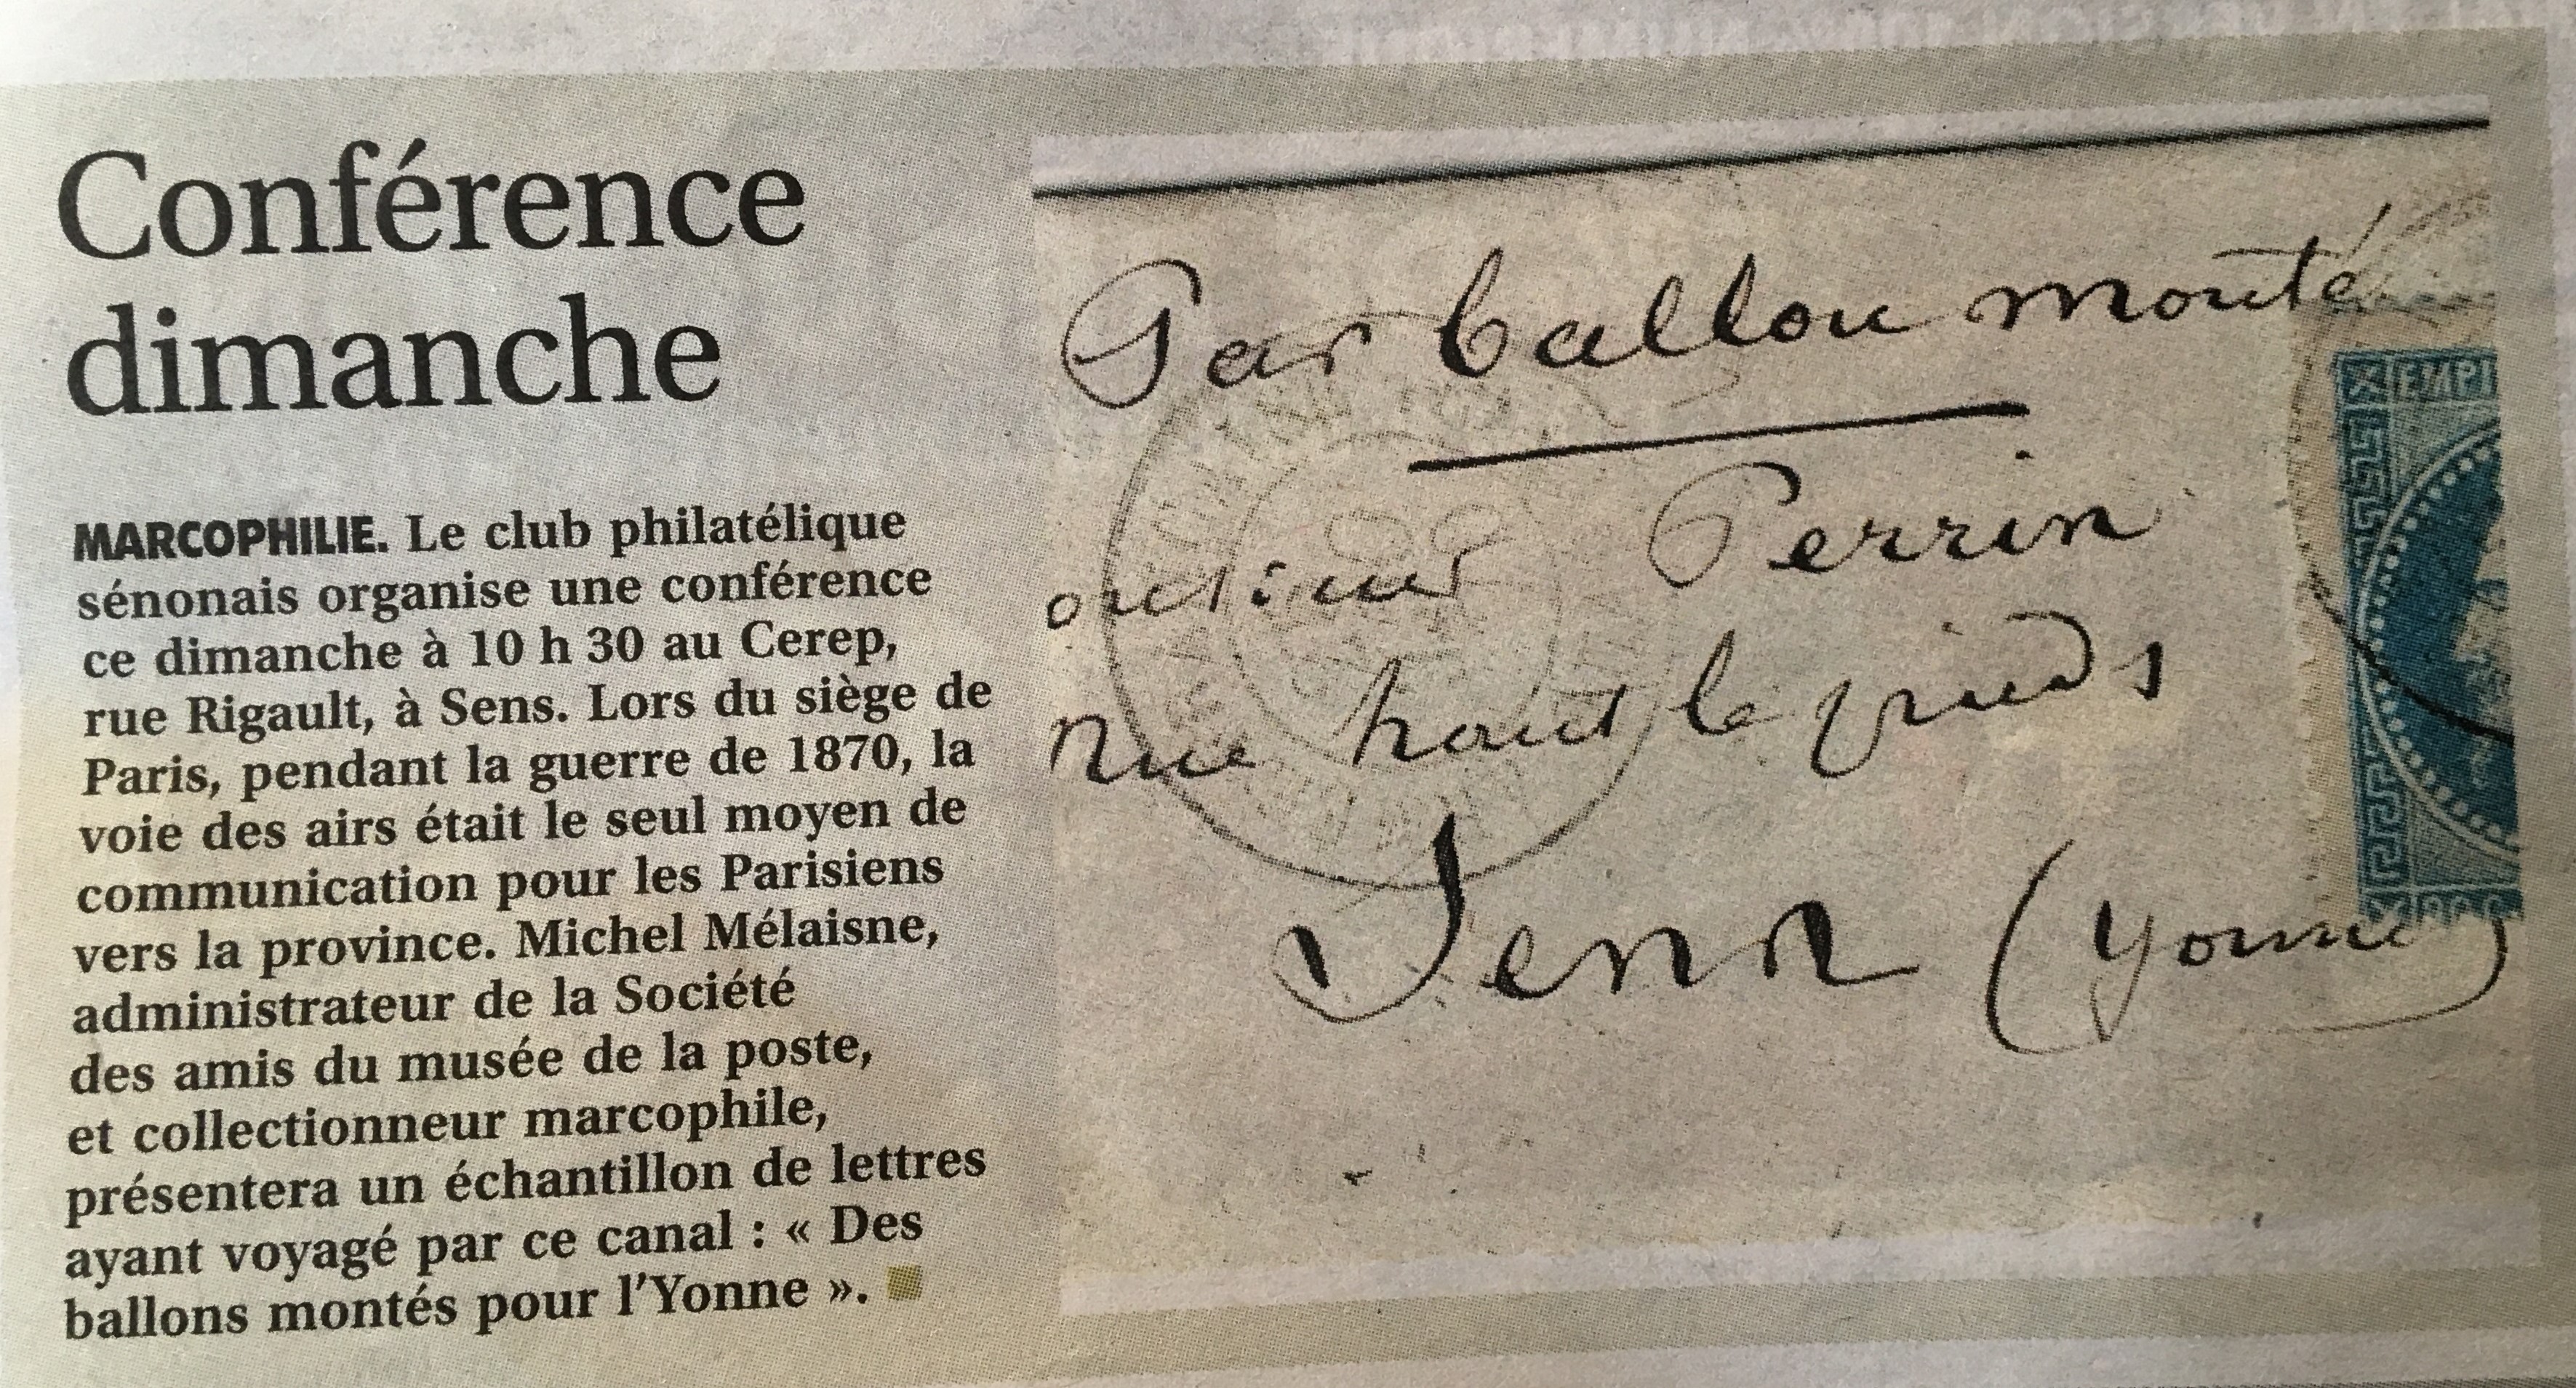 Conférence
dimanche
MARCOPHILIE. Le club philatélique
sénonais organise une conférence
ce dimanche à 10 h 30 au Cerep,
rue Rigault, à Sens. Lors du siège de
Paris, pendant la guerre de 1870, la
voie des airs était le seul moyen de
communication pour les Parisiens
vers la province. Michel Mélaisne,
administrateur de la Société
des amis du musée de la poste,
et collectionneur marcophile,
présentera un échantillon de lettres
ayant voyagé par ce canal : « Des
ballons montés pour l'Yonne ».
Par ballon monté
Perrin
Rue haut le pieds
Sens (Yonne)
EMPI